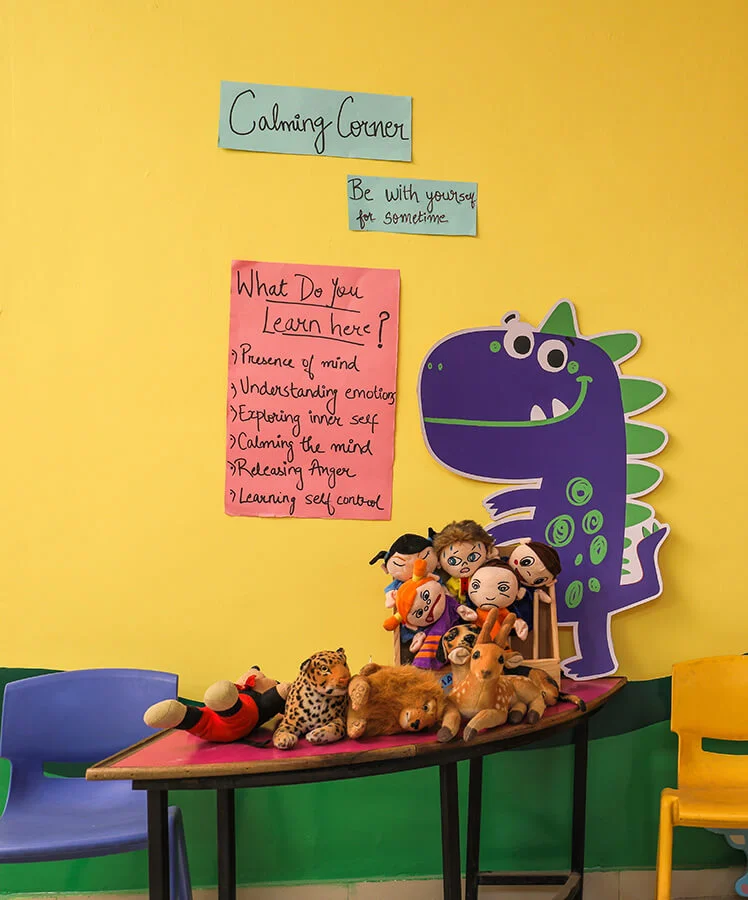 Calming Corner
Be with yourself
for sometime
What Do You
Learn here?
Presence of mind
Understanding emotions
Exploring inner self
Calming the mind
Releasing Anger
Learning self control